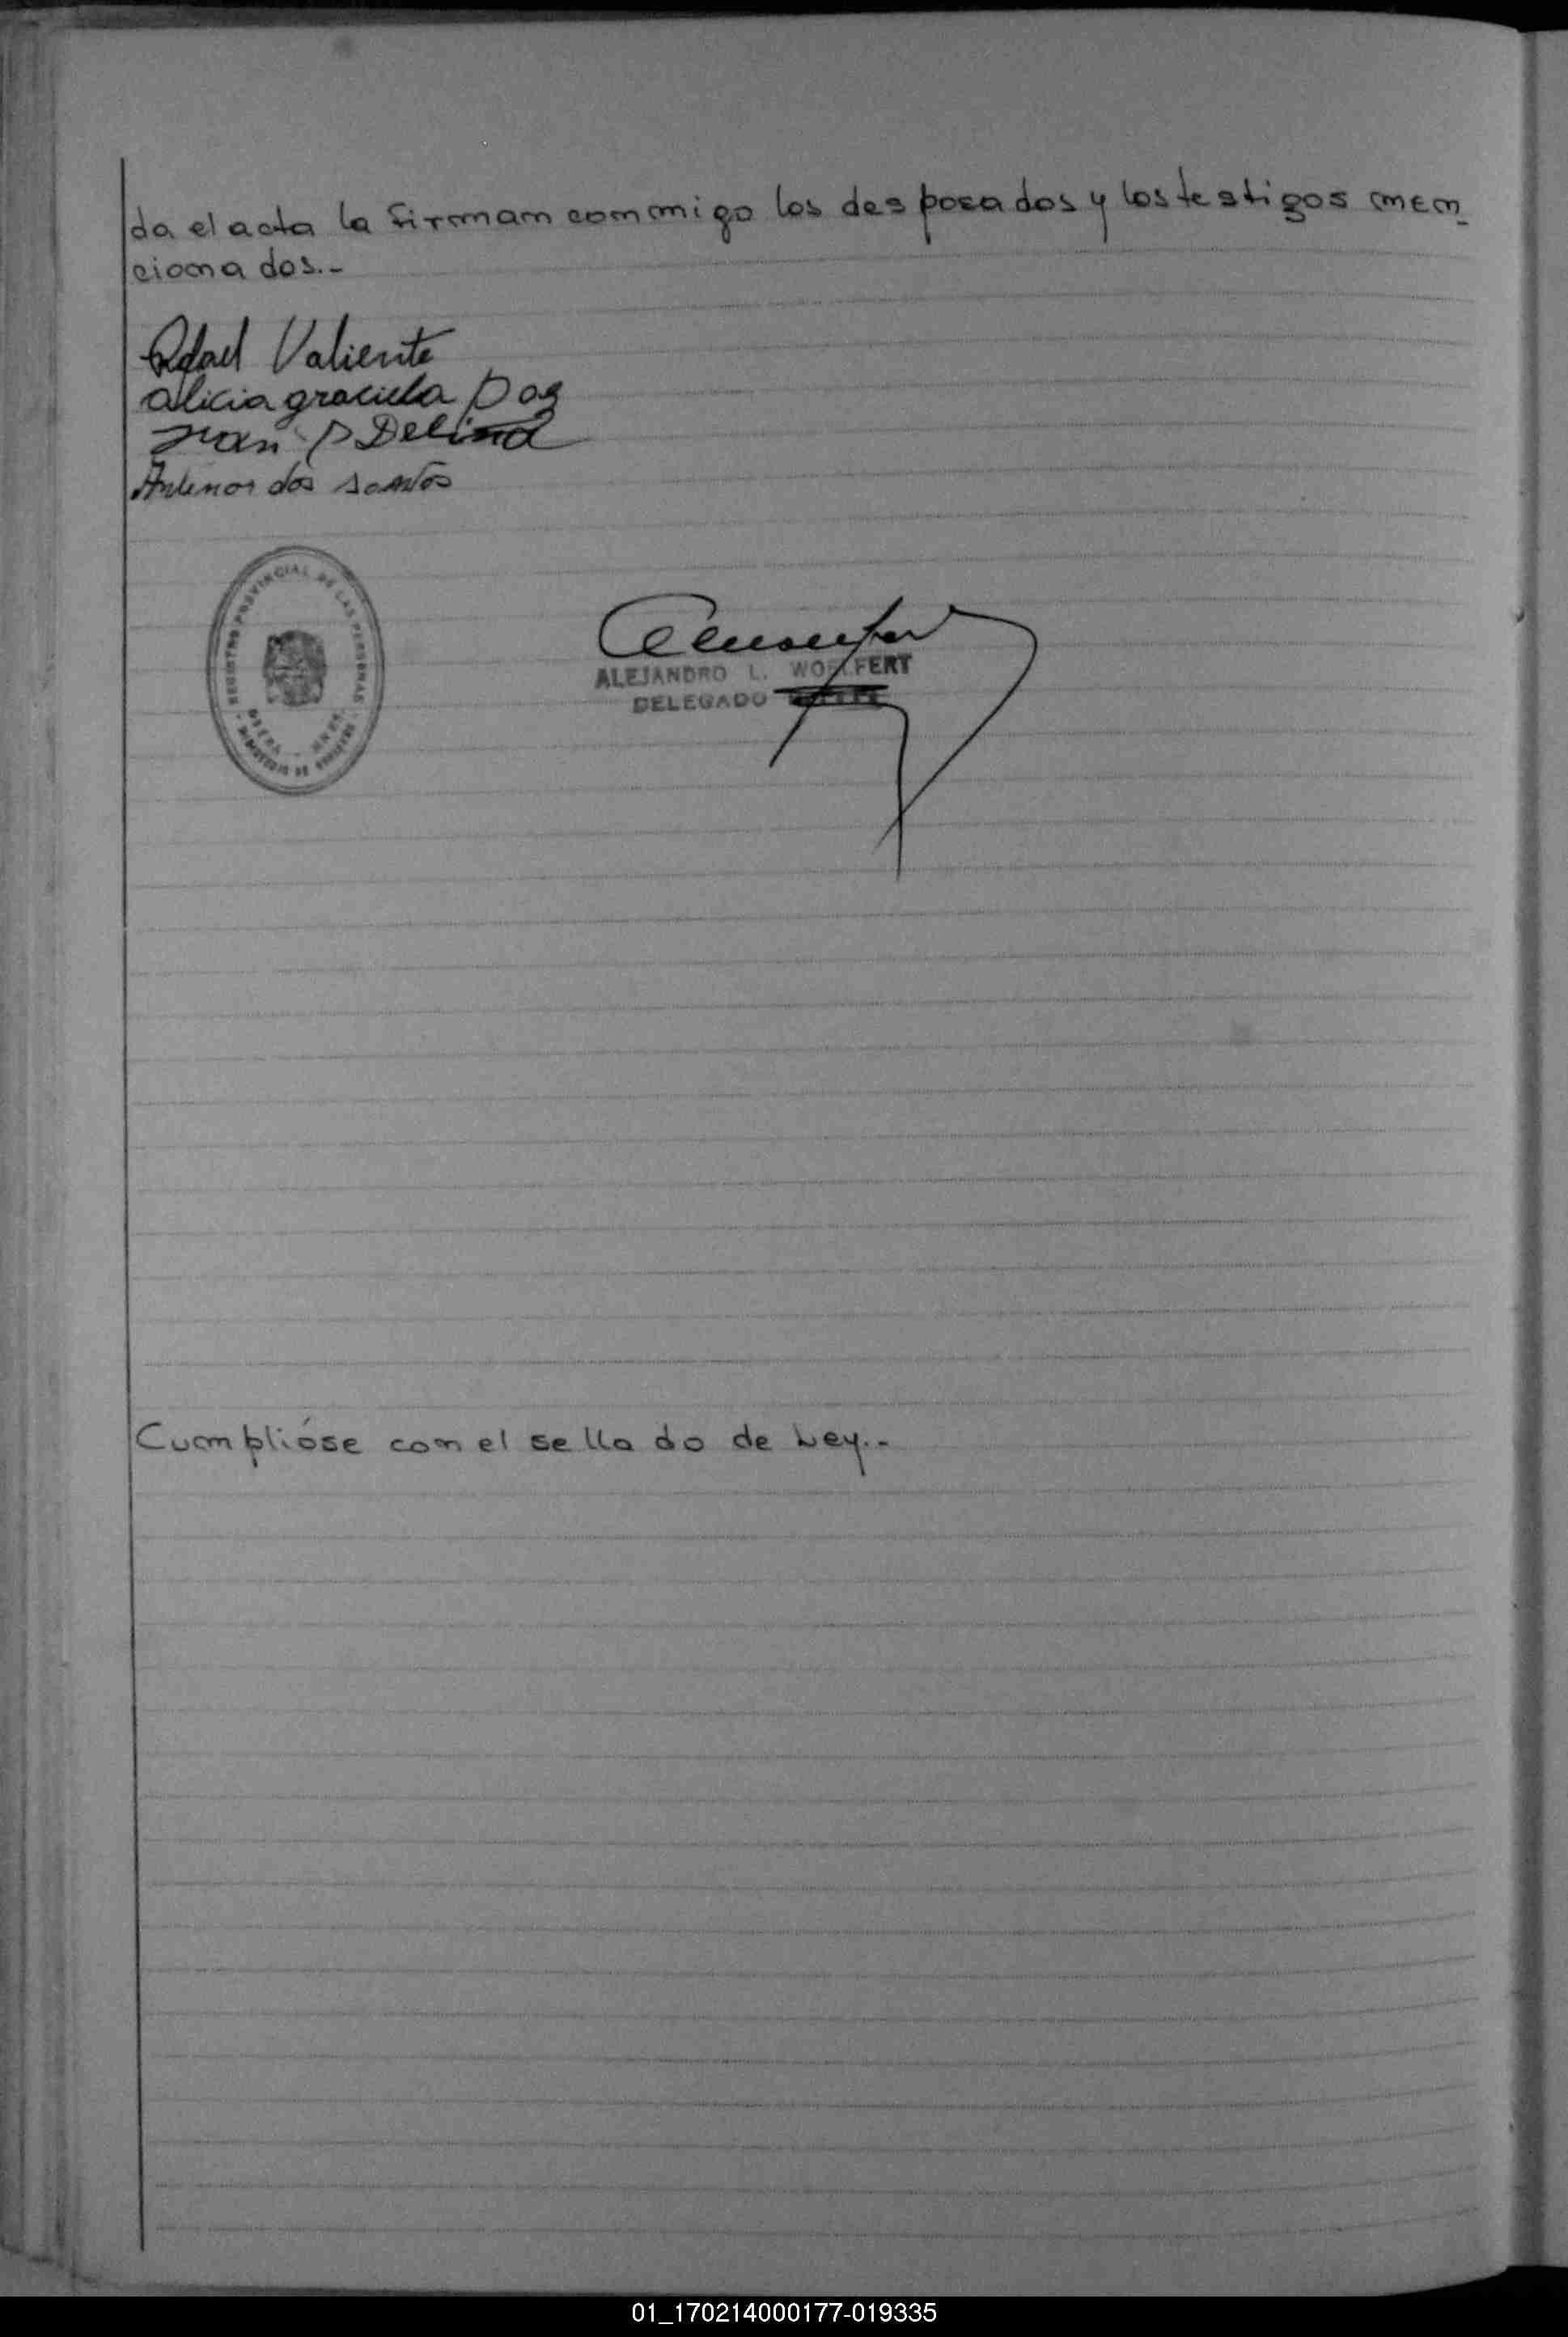 da el acta la firman conmigo los desposados y los testigos men-
cionados.-
Rafael Valiente
alicia graciela
Juan P
Antenor dos santos
REGISTRO PROVINCIAL DE LAS PERSONAS
ALEJANDRO L. WOELFERT
DELEGADO
Cumplióse con el sellado de Ley.-
01_170214000177-019335